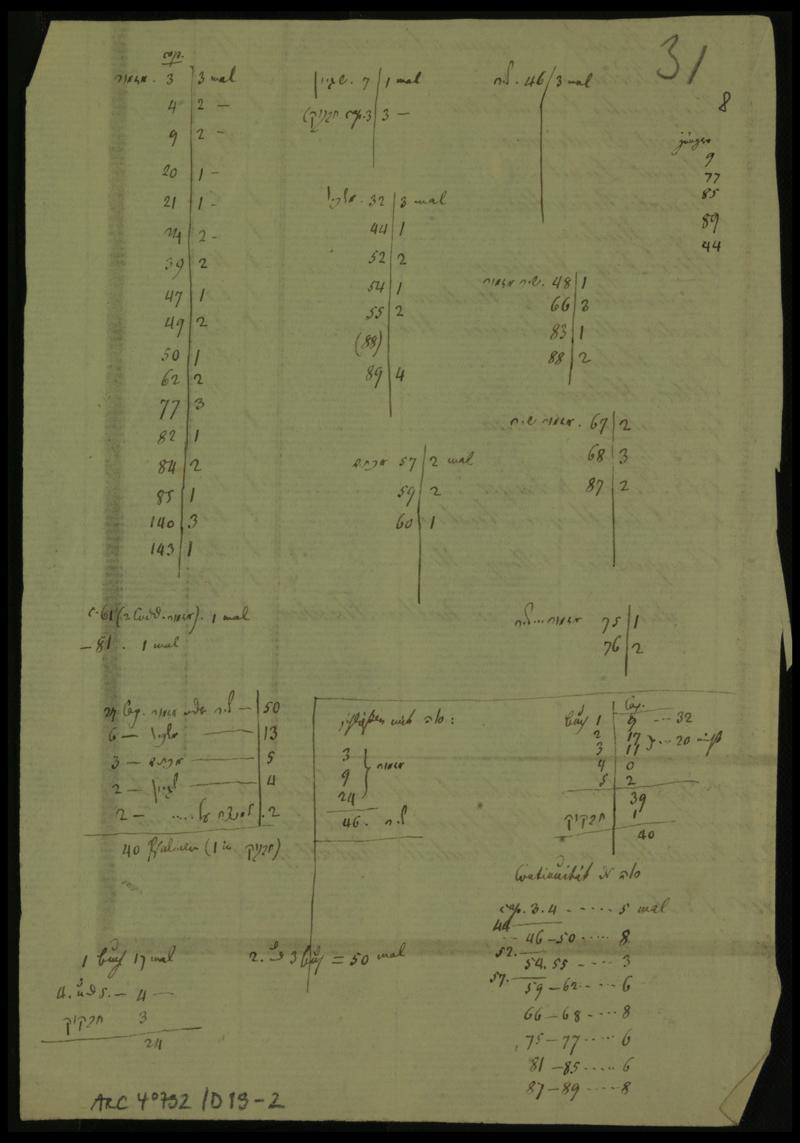 31
8
cap.
מזמור. 3 | 3 mal
4 | 2 —
9 | 2 —
20 | 1 —
21 | 1 —
24 | 2 —
39 | 2
47 | 1
49 | 2
50 | 1
62 | 2
77 | 3
82 | 1
84 | 2
85 | 1
140 | 3
143 | 1
שגיון. 7 | 1 mal
(חבקוק cap. 3 | 3 —
משכיל. 32 | 3 mal
44 | 1
52 | 2
54 | 1
55 | 2
(88)
89 | 4
מכתם 57 | 2 mal
59 | 2
60 | 1
שיר. 46 | 3 mal
שיר מזמור. 48 | 1
66 | 3
83 | 1
88 | 2
מזמור שיר. 67 | 2
68 | 3
87 | 2
מזמור שיר 75 | 1
76 | 2
9
77
85
89
44
c. 61 1 mal
— 81. 1 mal
27 Cap. מזמור שיר — | 50
6 — משכיל — | 13
3 — מכתם — | 5
2 — שגיון — | 4
2 — למנצח על ..... | 2
40 Psalmen (1 in חבקוק)
schließen mit סלה:
3
9 } מזמור
24
46. שיר
Cap.
Buch 1 | 9 --- 32
2 | 17
3 | 11 } --- 20 nicht
4 | 0
5 | 2
39
חבקוק | 1
40
Continuität סלה
cap. 3. 4 ----- 5 mal
44
46-50 ----- 8
52.
54. 55 ---- 3
57.
59-62 ---- 6
66-68 ---- 8
75-77 ---- 6
81-85 ---- 6
87-89 ---- 8
1 Buch 17 mal
4. und 5. — 4 —
חבקוק 3
24
2. und 3 Buch = 50 mal
ARC 4°792 /D13-2